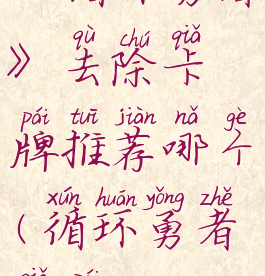 》去除卡
qù chú qiǎ
pái tuī jiàn nǎ gè
牌推荐哪个
xún huán yǒng zhě
(循环勇者